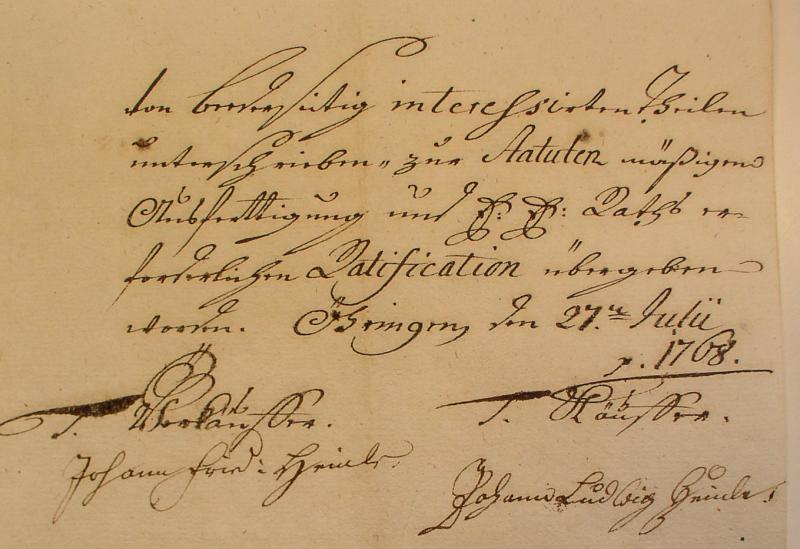 von beederseitig interessirten Theilen
unterschrieben, zur Statuten mäßigen
Ausferttigung und E: E: Raths er-
forderlichen Ratification übergeben
worden. Öhringen, den 27.ten Julii
1768.
T. Verkäuffer. T. Käuffer.
Johann Fried: Heinle
Johann Ludwig Heinle.